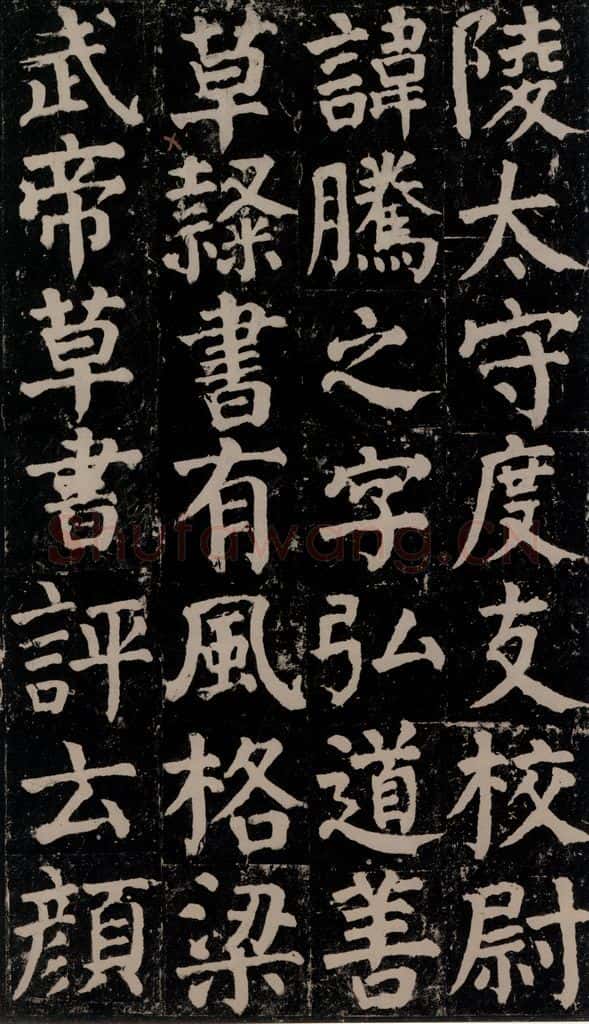 陵太守度支校尉
諱騰之字弘道善
草隸書有風格梁
武帝草書評云顔
shufawang.CN